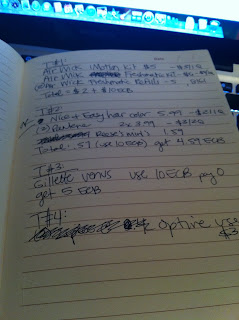 T#1:
Air Wick iMotion Kit $5 - $2/1S
Air Wick Freshmatic Kit
Air Wick Freshmatic Refills - 5
Total: $2 + $10 ECB
T#2
Nice n Easy hair color 5.99 - $2/1S
(2) Pantene 2x 3.99 - $3/2S
Reese's mini's 1.59
Total: .57 (use 10 ECB) get 4.59 ECB
T#3
Gillette Venus use 10 ECB pay 0
get 5 ECB
T#4:
optive